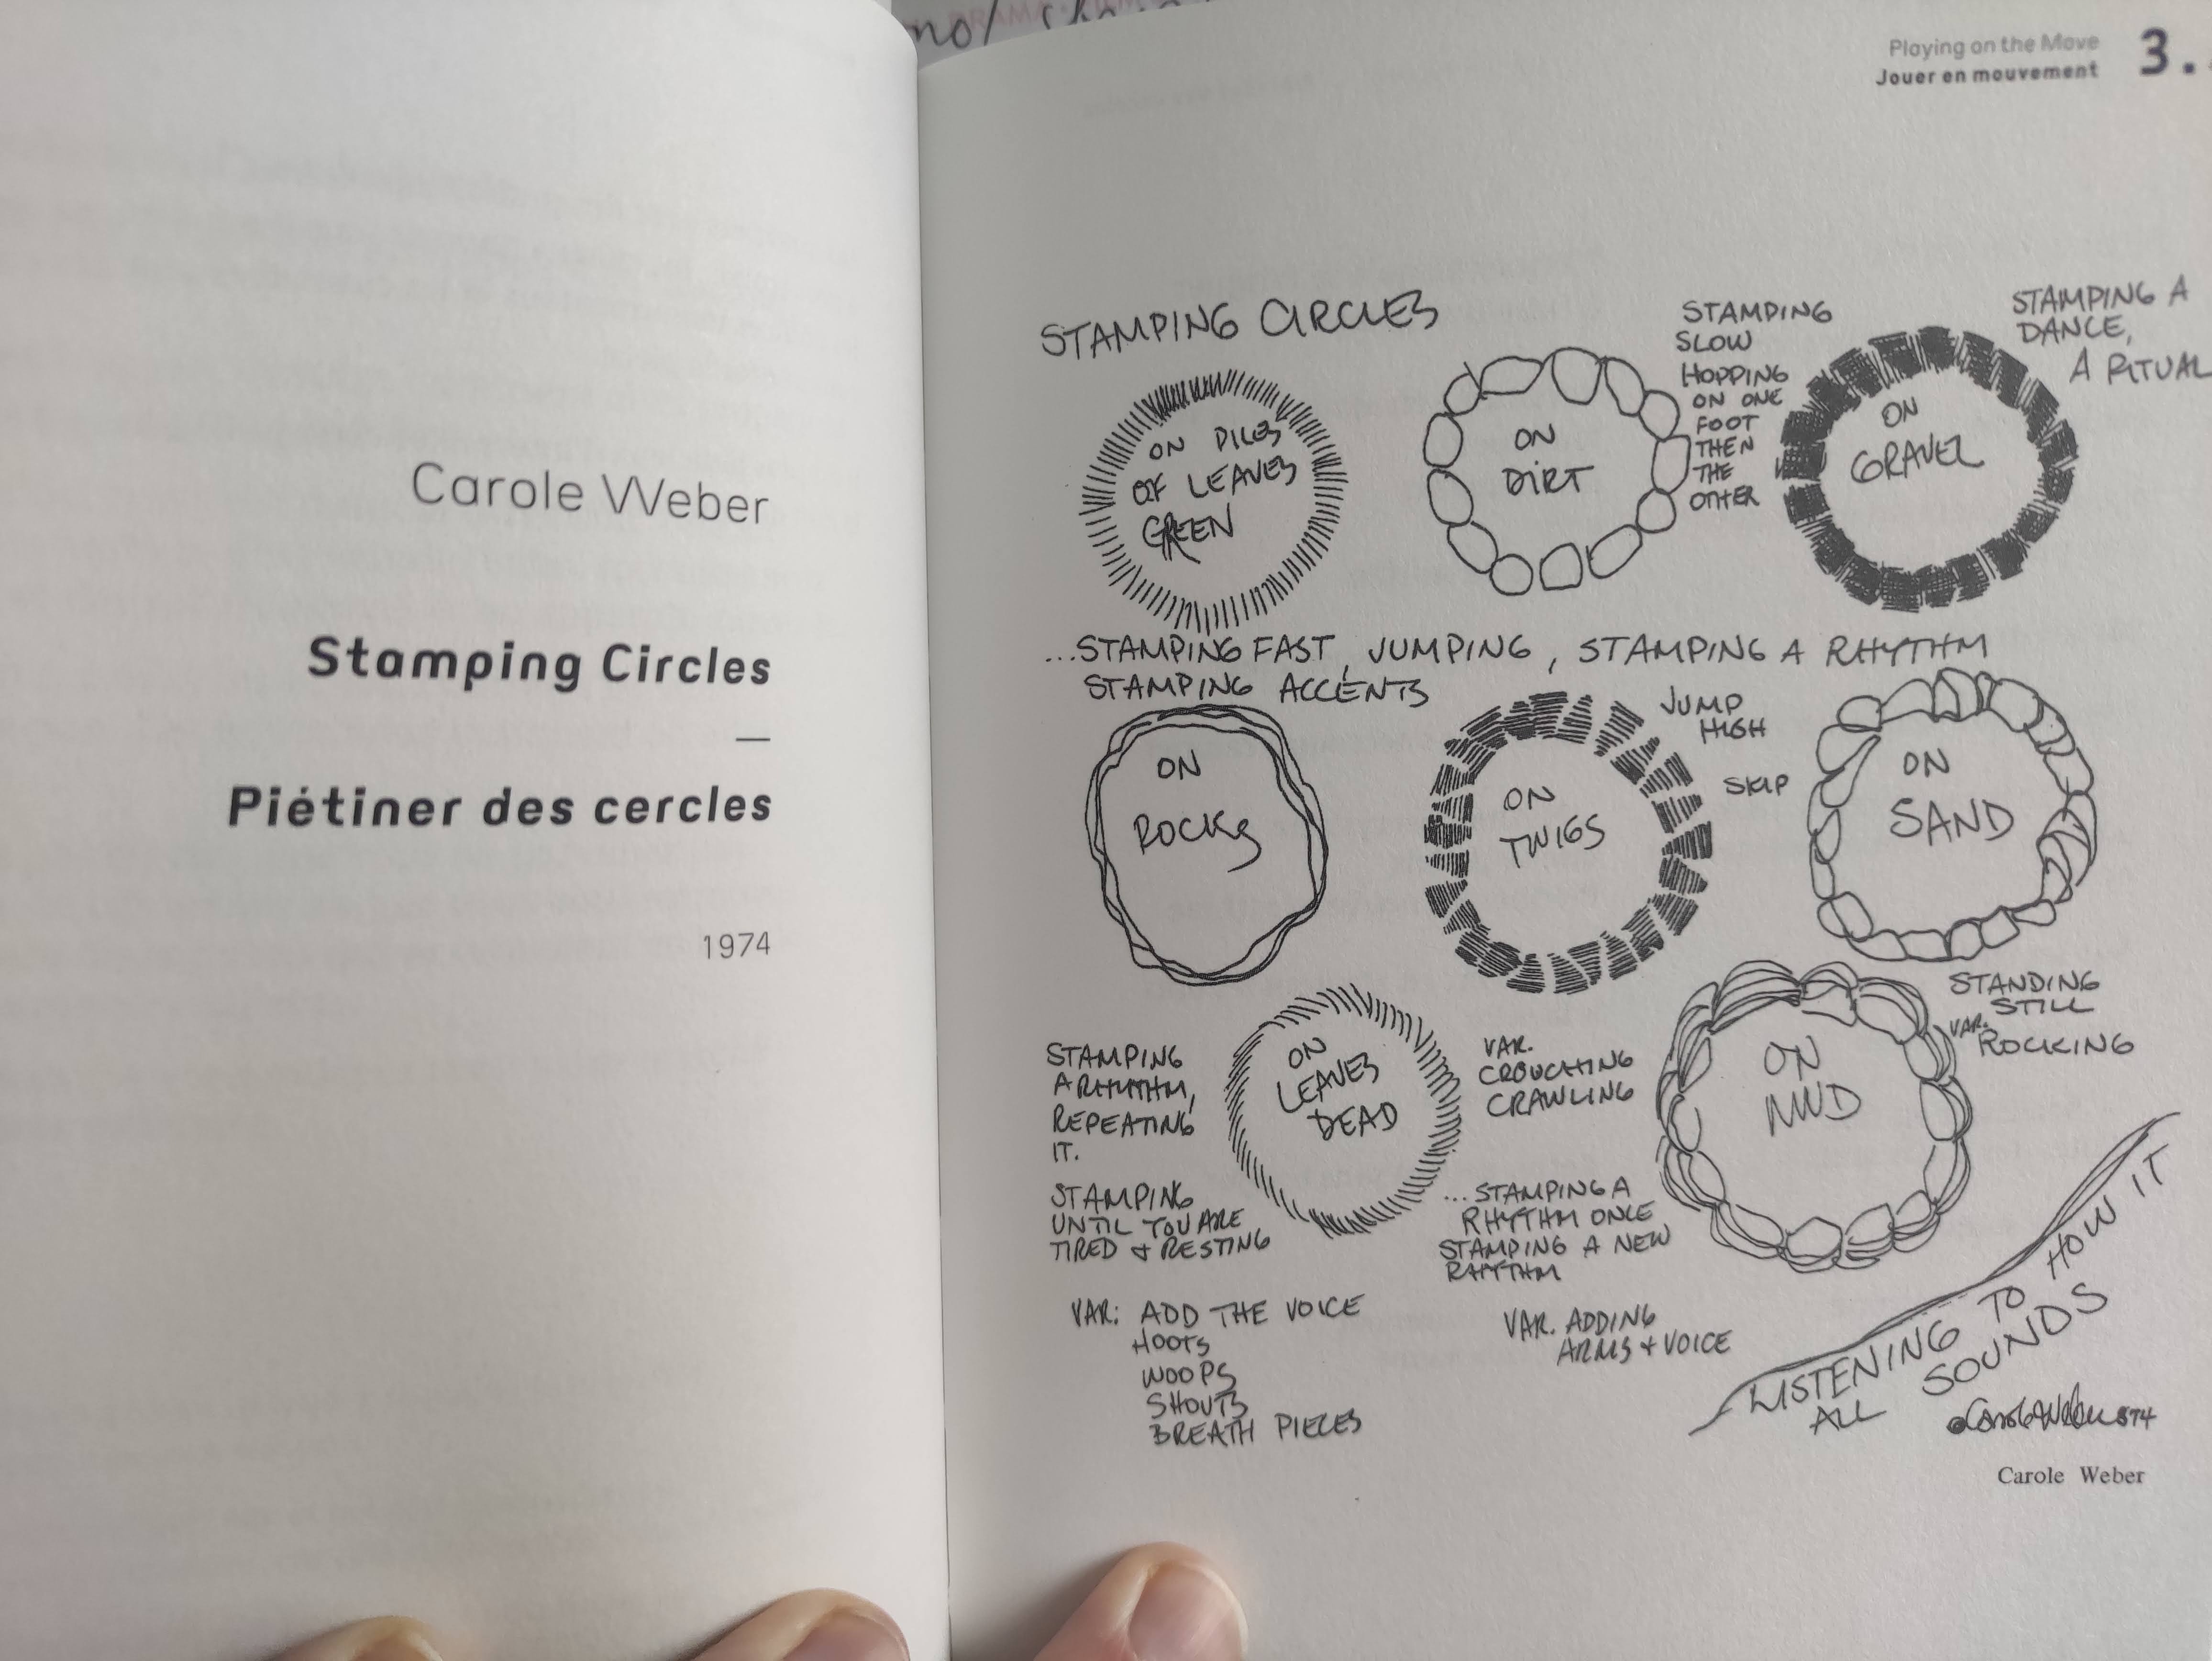 Carole Weber
Stamping Circles
—
Piétiner des cercles
1974
Playing on the Move
Jouer en mouvement
3.
STAMPING CIRCLES
ON PILES
OF LEAVES
GREEN
ON
DIRT
STAMPING
SLOW
HOPPING
ON ONE
FOOT
THEN
THE
OTHER
ON
GRAVEL
STAMPING A
DANCE,
A RITUAL
...STAMPING FAST, JUMPING, STAMPING A RHYTHM
STAMPING ACCENTS
ON
ROCKS
ON
TWIGS
JUMP
HIGH
SKIP
ON
SAND
STAMPING
A RHYTHM,
REPEATING
IT.
STAMPING
UNTIL YOU ARE
TIRED + RESTING
ON
LEAVES
DEAD
VAR.
CROUCHING
CRAWLING
...STAMPING A
RHYTHM ONCE
STAMPING A NEW
RHYTHM
ON
MUD
STANDING
STILL
VAR. ROCKING
VAR: ADD THE VOICE
HOOTS
WOOPS
SHOUTS
BREATH PIECES
VAR. ADDING
ARMS + VOICE
LISTENING TO HOW IT
ALL SOUNDS
Carole Weber
Carole Weber